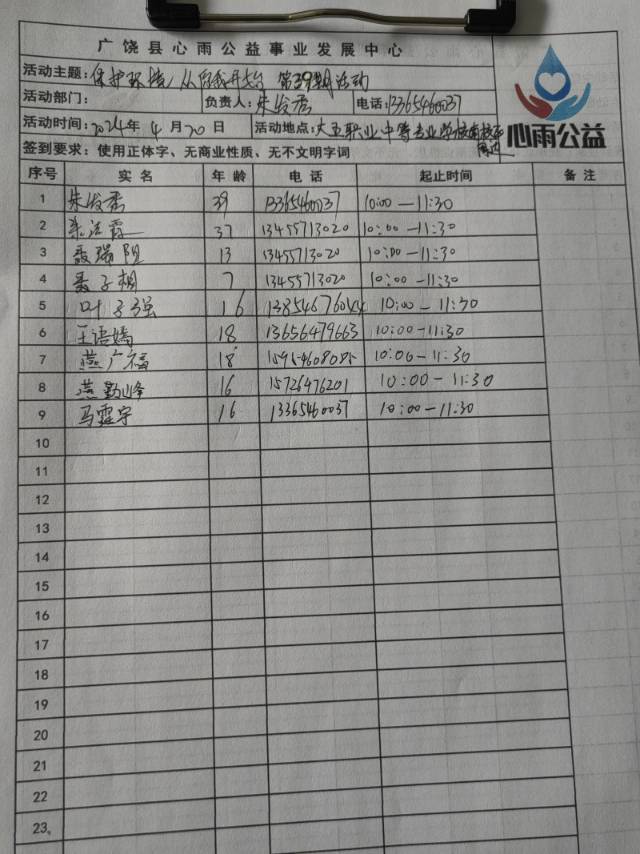 广饶县心雨公益事业发展中心
活动主题：保护环境从自我开始 第39期活动
活动部门： 负责人：朱发秀 电话：13365460037
活动时间：2024年4月20日 活动地点：大王职业中等专业学校南校区周边
心雨公益
签到要求：使用正体字、无商业性质、无不文明字词
序号 实名 年龄 电话 起止时间 备注
1 朱发秀 39 13365460037 10:00—11:30
2 37 13455713020 10:00—11:30
3 聂瑞阳 13 13455713020 10:00—11:30
4 聂子桐 7 13455713020 10:00—11:30
5 叶子强 16 10:00—11:30
6 王语嫣 18 13656479663 10:00—11:30
7 燕广福 18 15954608085 10:00—11:30
8 燕 峰 16 15726476201 10:00—11:30
9 马霆宇 16 13365460037 10:00—11:30
10
11
12
13
14
15
16
17
18
19
20
21
22
23。